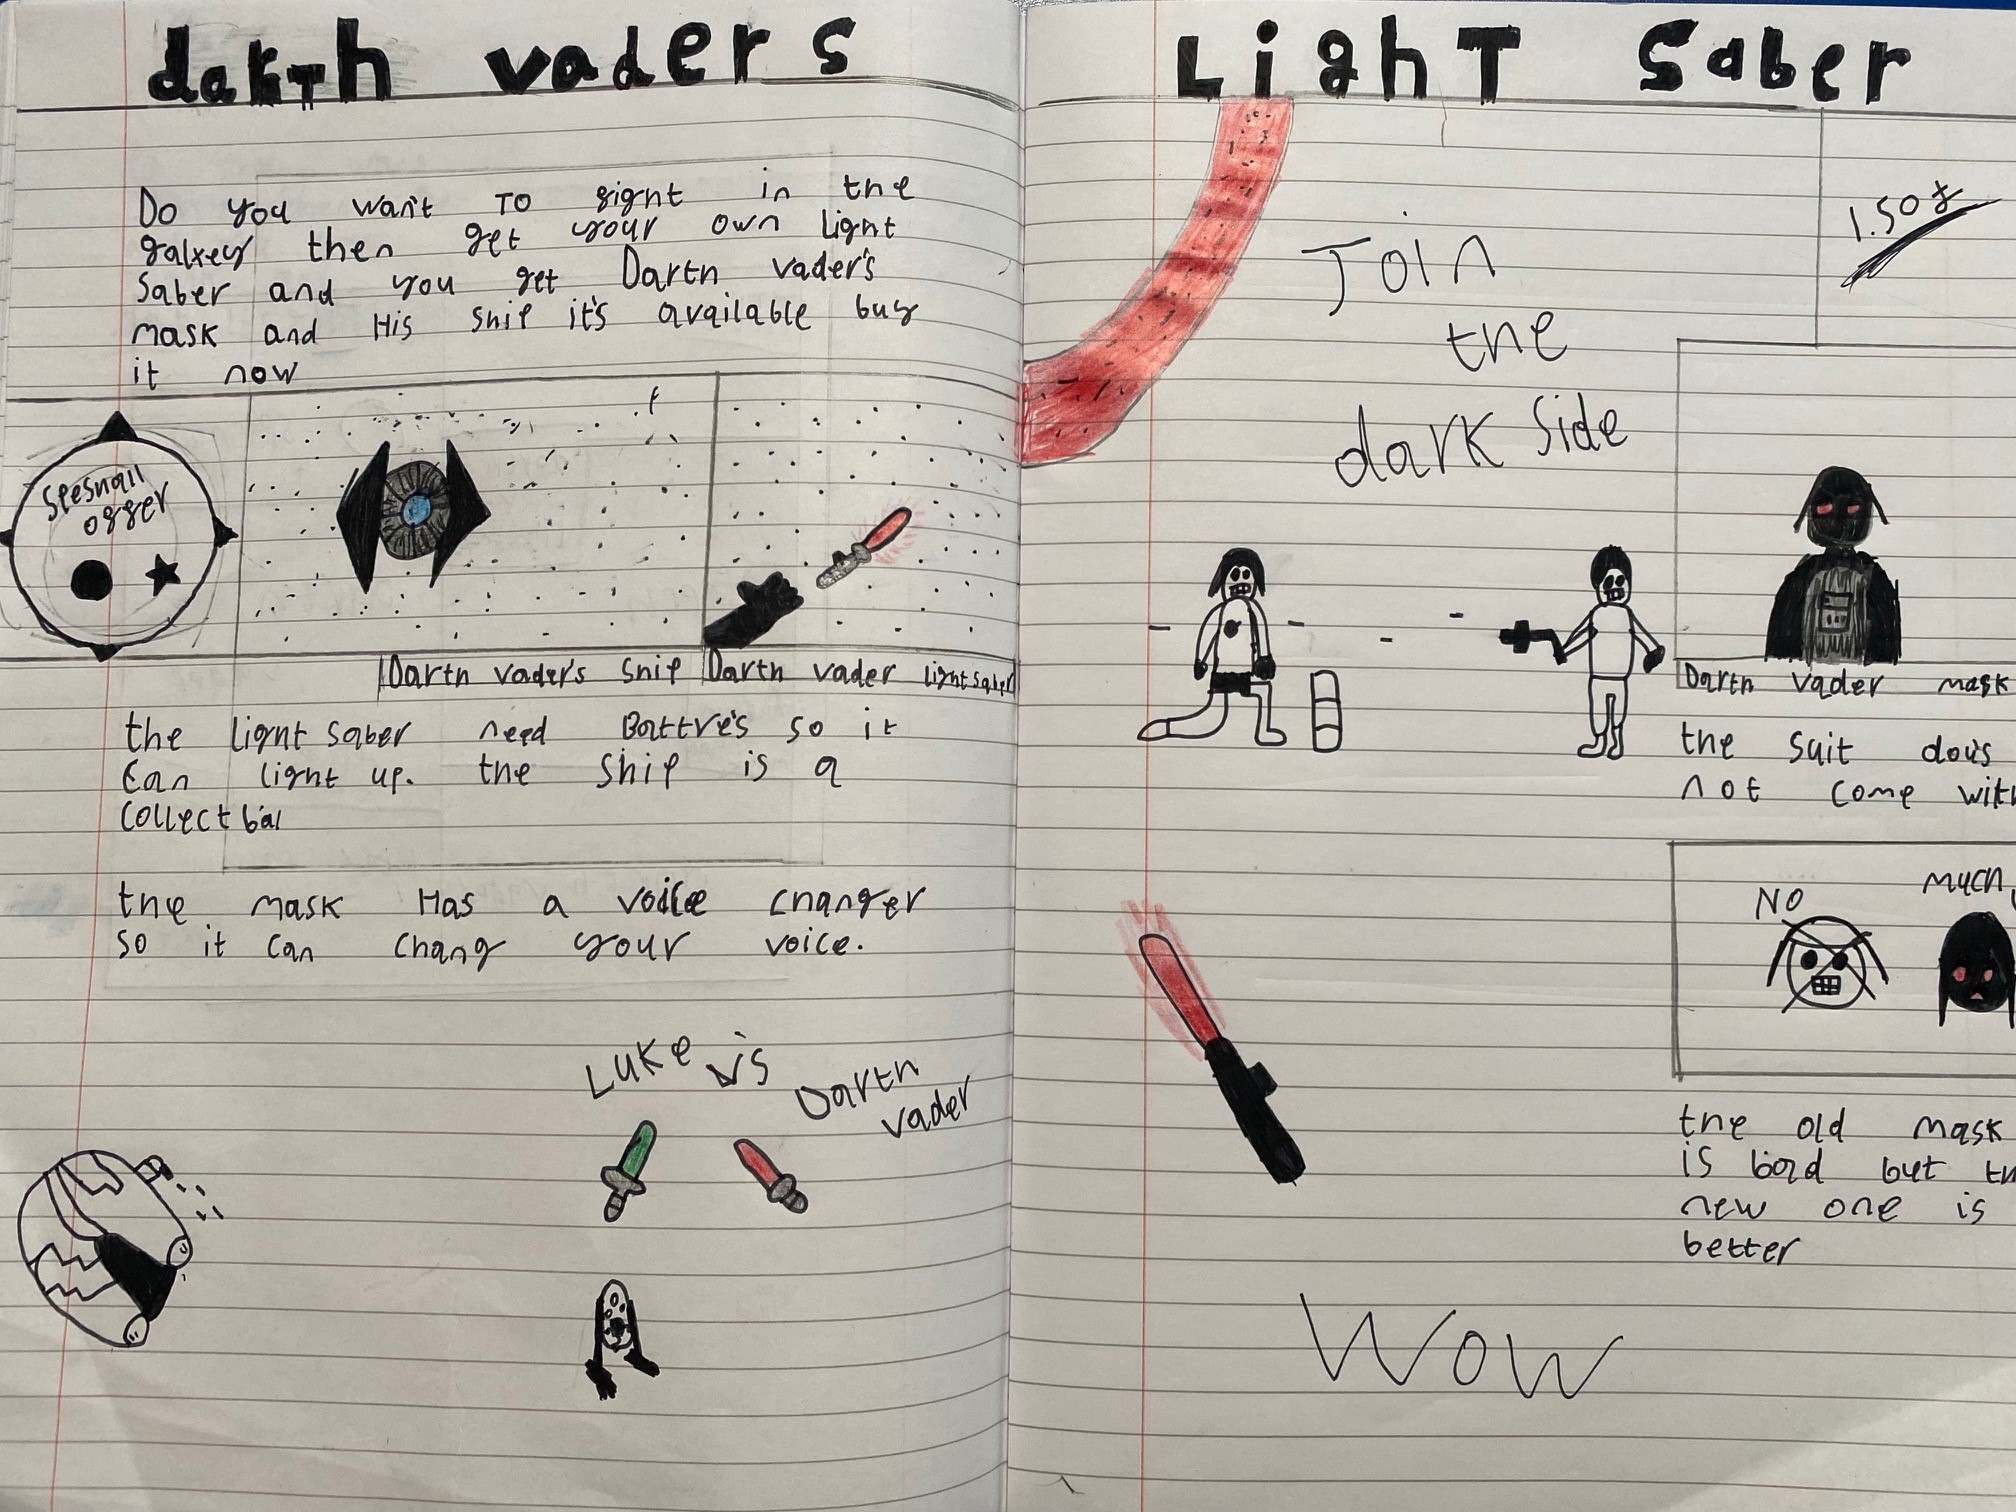 darth vaders Light Saber
Do you wan't TO fight in the
galxey then get your own light
saber and you get Darth vader's
mask and His ship it's available buy
it now
Speshall
offer
Darth vader's ship
Darth vader lightsaber
the light saber need Battre's so it
can light up. the ship is a
collectbal
the mask Has a voice changer
so it can chang your voice.
Luke v's
Darth
vader
Join
the
dark side
1.50
Darth vader mask
the suit dou's
not come with
NO
much
the old mask
is bad but
new one is
better
Wow